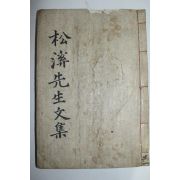 松濟先生文集